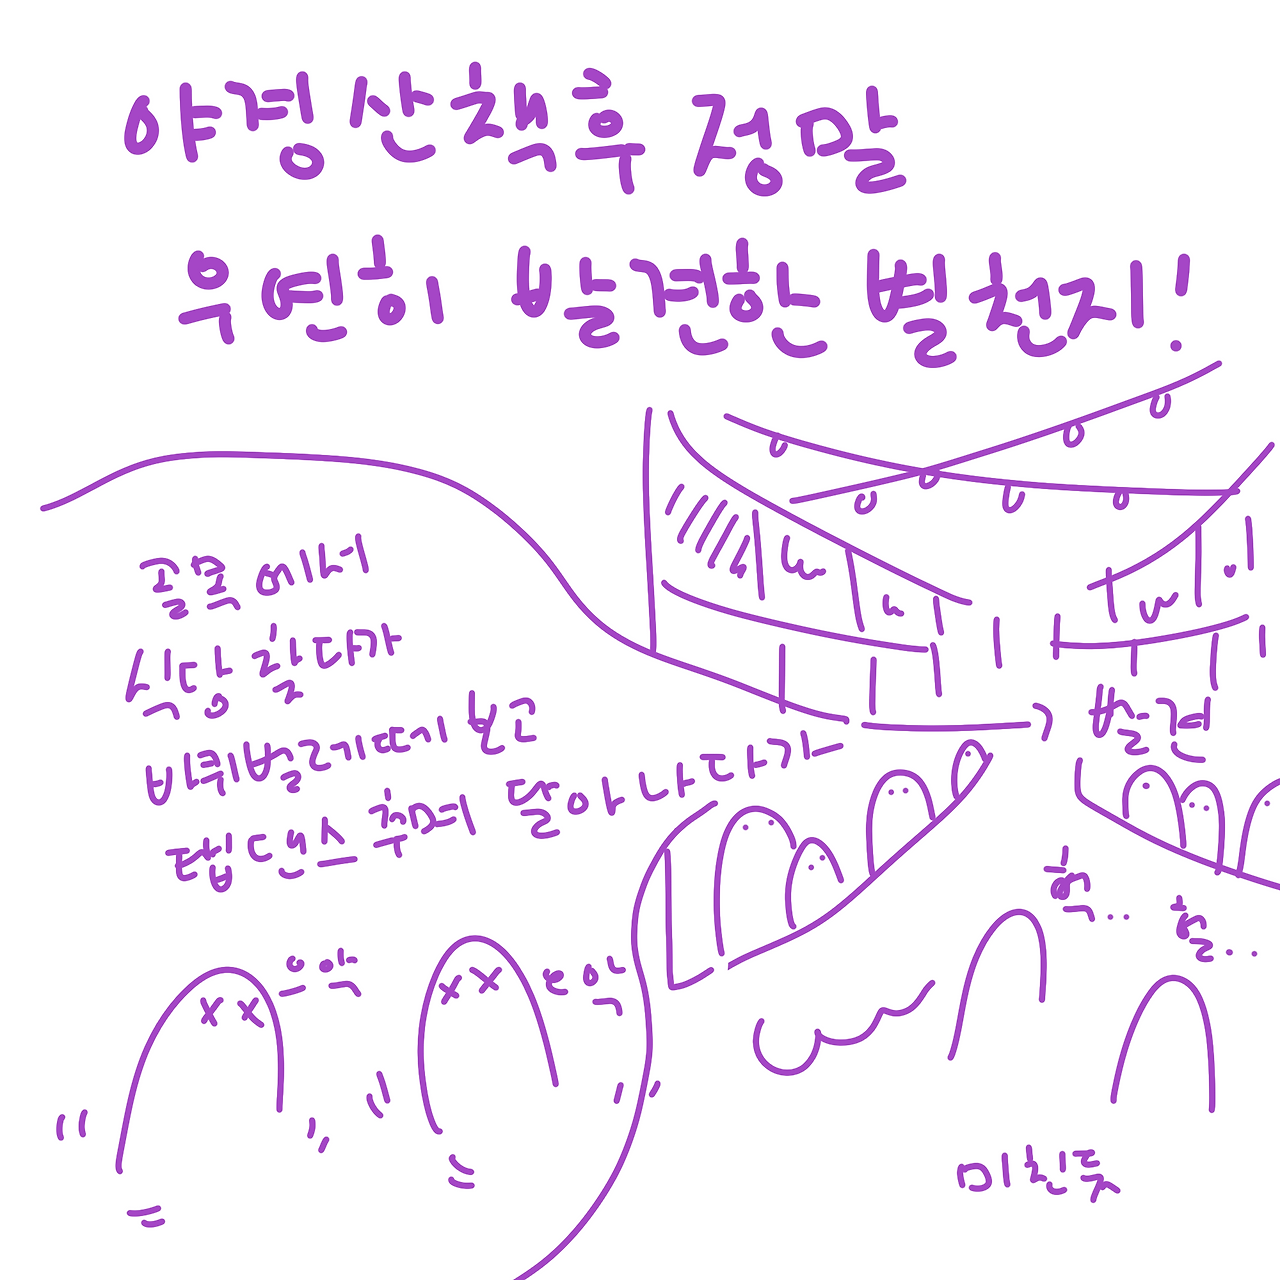 야경 산책후 정말
우연히 발견한 별천지!
골목에서
식당 찾다가
바퀴벌레떼 보고
탭댄스 추며 달아나다가
발견
헉..
헐..
으악
으악
미친듯